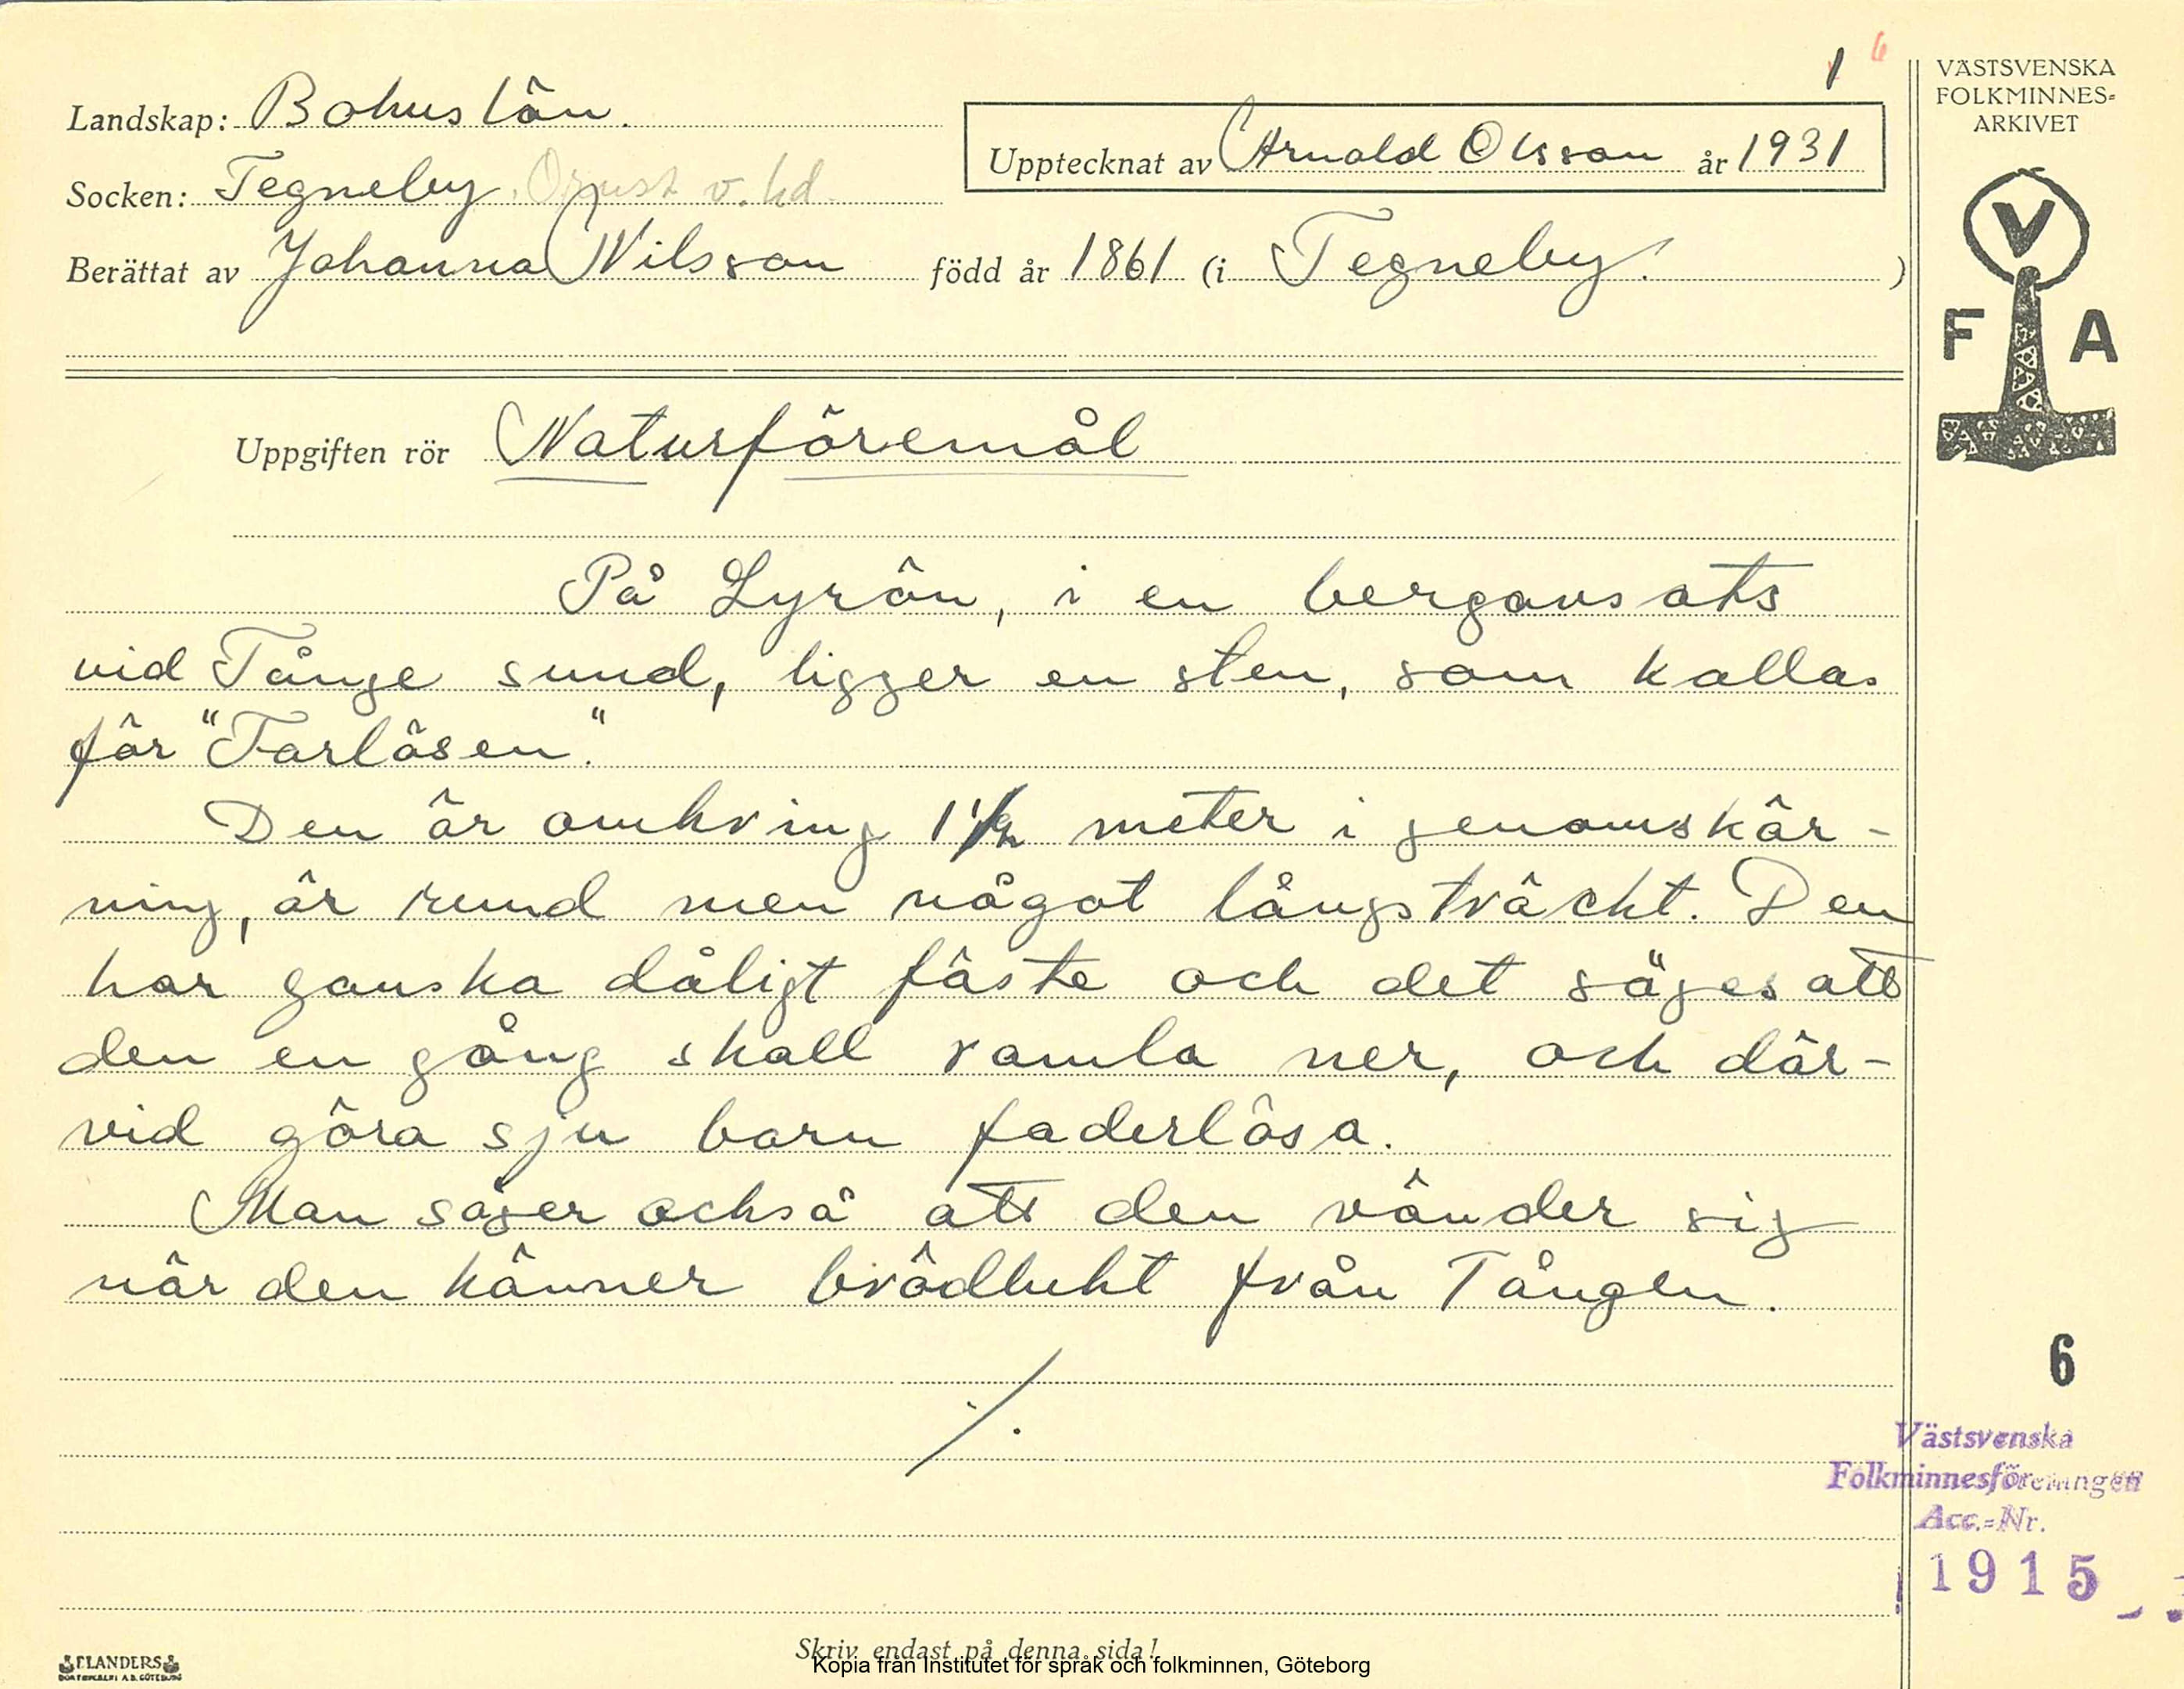 1 6
VÄSTSVENSKA
FOLKMINNES=
ARKIVET
Landskap: Bohuslän.
Upptecknat av Arnold Olsson år 1931
Socken: Tegneby. Orust v. hd.
Berättat av Johanna Nilsson född år 1861 (i Tegneby. )
V
F A
Uppgiften rör Naturföremål
På Lyrön, i en bergavsats
vid Tånge sund, ligger en sten, som kallas
för "Farlösen."
Den är omkring 1 1/2 meter i genomskär-
ning, är rund men något långsträckt. Den
har ganska dåligt fäste och det säges att
den en gång skall ramla ner, och där-
vid göra sju barn faderlösa.
Man säger också att den vänder sig
när den känner brödlukt från Tången.
./.
6
Västsvenska
Folkminnesföreningen
Acc.=Nr.
1915
Skriv endast på denna sida!
Kopia från Institutet för språk och folkminnen, Göteborg
ELANDERS